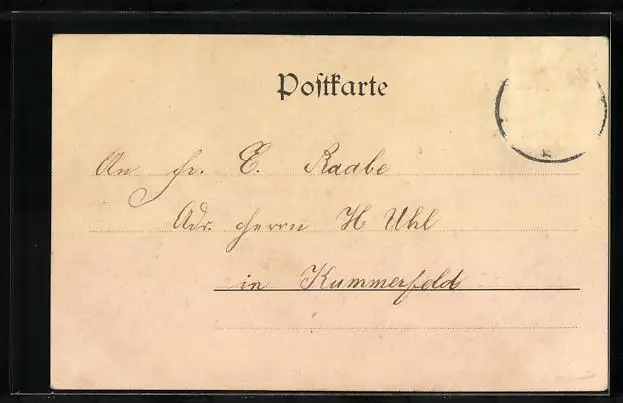 Postkarte
An Fr. E. Raabe
Adr. Herrn H Uhl
in Kummerfeld